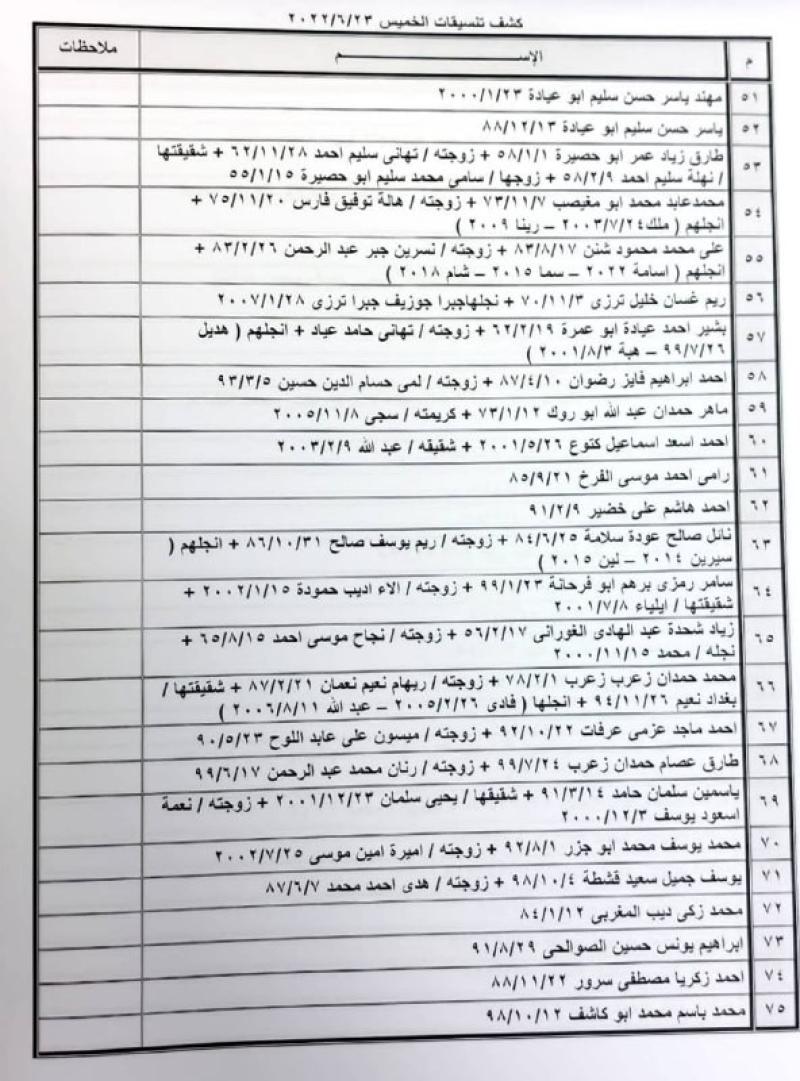 كشف تنسيقات الخميس ٢٠٢٢/٦/٢٣
م الإســـــــم ملاحظات
٥١ مهند ياسر حسن سليم ابو عيادة ٢٠٠٠/١/٢٣
٥٢ ياسر حسن سليم ابو عيادة ٨٨/١٢/١٣
٥٣ طارق زياد عمر ابو حصيرة ٥٨/١/١ + زوجته / تهانى سليم احمد ٦٢/١١/٢٨ + شقيقتها
/ نهلة سليم احمد ٥٨/٢/٩ + زوجها / سامى محمد سليم ابو حصيرة ٥٥/١/١٥
٥٤ محمدعابد محمد ابو مغيصب ٧٣/١١/٧ + زوجته / هالة توفيق فارس ٧٥/١١/٢٠ +
انجلهم ( ملك٢٠٠٣/٧/٢٤ – رينا ٢٠٠٩ )
٥٥ على محمد محمود شنن ٨٣/٨/١٧ + زوجته / نسرين جبر عبد الرحمن ٨٣/٢/٢٦ +
انجلهم ( اسامة ٢٠٢٢ – سما ٢٠١٥ – شام ٢٠١٨ )
٥٦ ريم غسان خليل ترزى ٧٠/١١/٣ + نجلهاجبرا جوزيف جبرا ترزى ٢٠٠٧/١/٢٨
٥٧ بشير احمد عيادة ابو عمرة ٦٢/٢/١٩ + زوجته / تهانى حامد عياد + انجلهم ( هديل
٩٩/٧/٢٦ – هبة ٢٠٠١/٨/٣ )
٥٨ احمد ابراهيم فايز رضوان ٨٧/٤/١٠ + زوجته / لمى حسام الدين حسين ٩٣/٣/٥
٥٩ ماهر حمدان عبد الله ابو روك ٧٣/١/١٢ + كريمته / سجى ٢٠٠٥/١١/٨
٦٠ احمد اسعد اسماعيل كتوع ٢٠٠١/٥/٢٦ + شقيقه / عبد الله ٢٠٠٣/٢/٩
٦١ رامى احمد موسى الفرخ ٨٥/٩/٢١
٦٢ احمد هاشم على خضير ٩١/٢/٩
٦٣ نائل صالح عودة سلامة ٨٤/٦/٢٥ + زوجته / ريم يوسف صالح ٨٦/١٠/٣١ + انجلهم (
سيرين ٢٠١٤ – لين ٢٠١٥ )
٦٤ سامر رمزى برهم ابو فرحانة ٩٩/١/٢٣ + زوجته / الاء اديب حمودة ٢٠٠٢/١/١٥ +
شقيقتها / ايلياء ٢٠٠١/٧/٨
٦٥ زياد شحدة عبد الهادى الغورانى ٥٦/٢/١٧ + زوجته / نجاح موسى احمد ٦٥/٨/١٥ +
نجله / محمد ٢٠٠٠/١١/١٥
٦٦ محمد حمدان زعرب زعرب ٧٨/٢/١ + زوجته / ريهام نعيم نعمان ٨٧/٢/٢١ + شقيقتها /
بغداد نعيم ٩٤/١١/٢٦ + انجلها ( فادى ٢٠٠٥/٢/٢٦ – عبد الله ٢٠٠٦/٨/١١ )
٦٧ احمد ماجد عزمى عرفات ٩٢/١٠/٢٢ + زوجته / ميسون على عابد اللوح ٩٠/٥/٢٣
٦٨ طارق عصام حمدان زعرب ٩٩/٧/٢٤ + زوجته / رنان محمد عبد الرحمن ٩٩/٦/١٧
٦٩ ياسمين سلمان حامد ٩١/٣/١٤ + شقيقها / يحيى سلمان ٢٠٠١/١٢/٢٣ + زوجته / نعمة
اسعود يوسف ٢٠٠٠/١٢/٣
٧٠ محمد يوسف محمد ابو جزر ٩٢/٨/١ + زوجته / اميرة امين موسى ٢٠٠٢/٧/٢٥
٧١ يوسف جميل سعيد قشطة ٩٨/١٠/٤ + زوجته / هدى احمد محمد ٨٧/٦/٧
٧٢ محمد زكى ديب المغربى ٨٤/١/١٢
٧٣ ابراهيم يونس حسين الصوالحى ٩١/٨/٢٩
٧٤ احمد زكريا مصطفى سرور ٨٨/١١/٢٢
٧٥ محمد باسم محمد ابو كاشف ٩٨/١٠/١٢